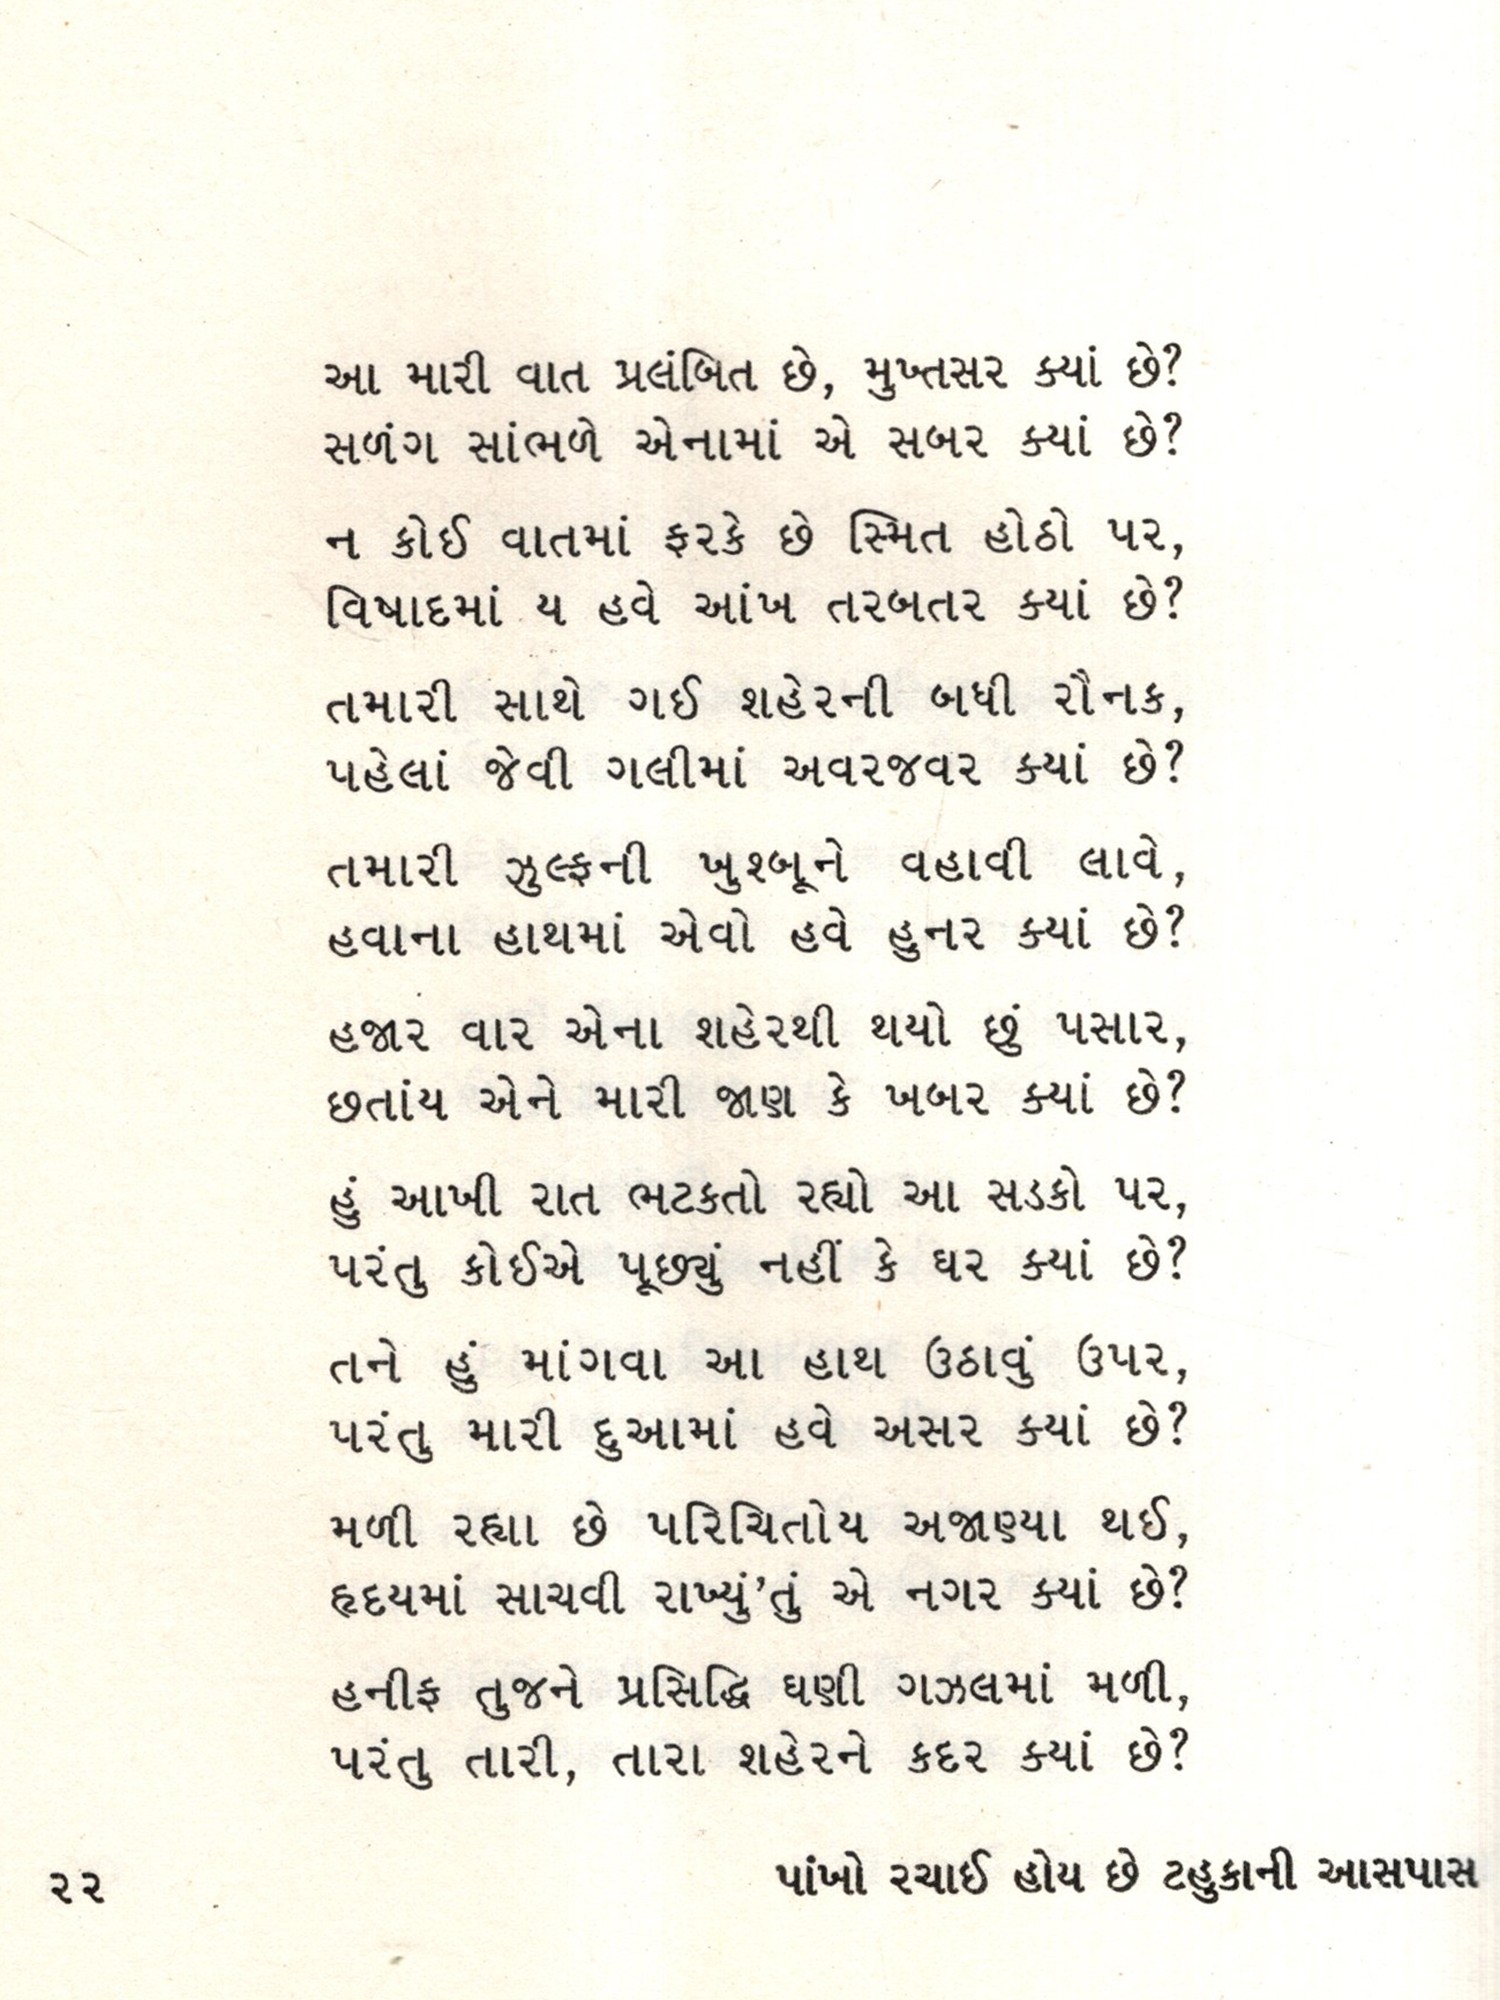 આ મારી વાત પ્રલંબિત છે, મુખ્તસર ક્યાં છે?
સળંગ સાંભળે એનામાં એ સબર ક્યાં છે?
ન કોઈ વાતમાં ફરકે છે સ્મિત હોઠો પર,
વિષાદમાં ય હવે આંખ તરબતર ક્યાં છે?
તમારી સાથે ગઈ શહેરની બધી રૌનક,
પહેલાં જેવી ગલીમાં અવરજવર ક્યાં છે?
તમારી ઝુલ્ફની ખુશ્બૂને વહાવી લાવે,
હવાના હાથમાં એવો હવે હુનર ક્યાં છે?
હજાર વાર એના શહેરથી થયો છું પસાર,
છતાંય એને મારી જાણ કે ખબર ક્યાં છે?
હું આખી રાત ભટકતો રહ્યો આ સડકો પર,
પરંતુ કોઈએ પૂછ્યું નહીં કે ઘર ક્યાં છે?
તને હું માંગવા આ હાથ ઉઠાવું ઉપર,
પરંતુ મારી દુઆમાં હવે અસર ક્યાં છે?
મળી રહ્યા છે પરિચિતોય અજાણ્યા થઈ,
હૃદયમાં સાચવી રાખ્યું'તું એ નગર ક્યાં છે?
હનીફ તુજને પ્રસિદ્ધિ ઘણી ગઝલમાં મળી,
પરંતુ તારી, તારા શહેરને કદર ક્યાં છે?
૨૨ પાંખો રચાઈ હોય છે ટહુકાની આસપાસ